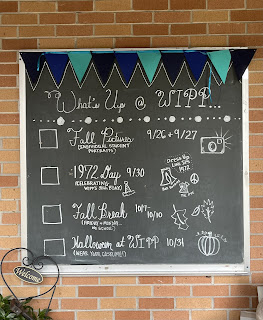 What's Up @ WIPP...
Fall Pictures 9/26 + 9/27
(INDIVIDUAL STUDENT PORTRAITS)
1972 Day 9/30
(CELEBRATING WIPP'S 50th BDAY)
Dress up
like it's
1972
Fall Break 10/7-
10/10
(FRIDAY + MONDAY...
NO SCHOOL)
Halloween at WIPP 10/31
(WEAR YOUR COSTUME!)
Welcome